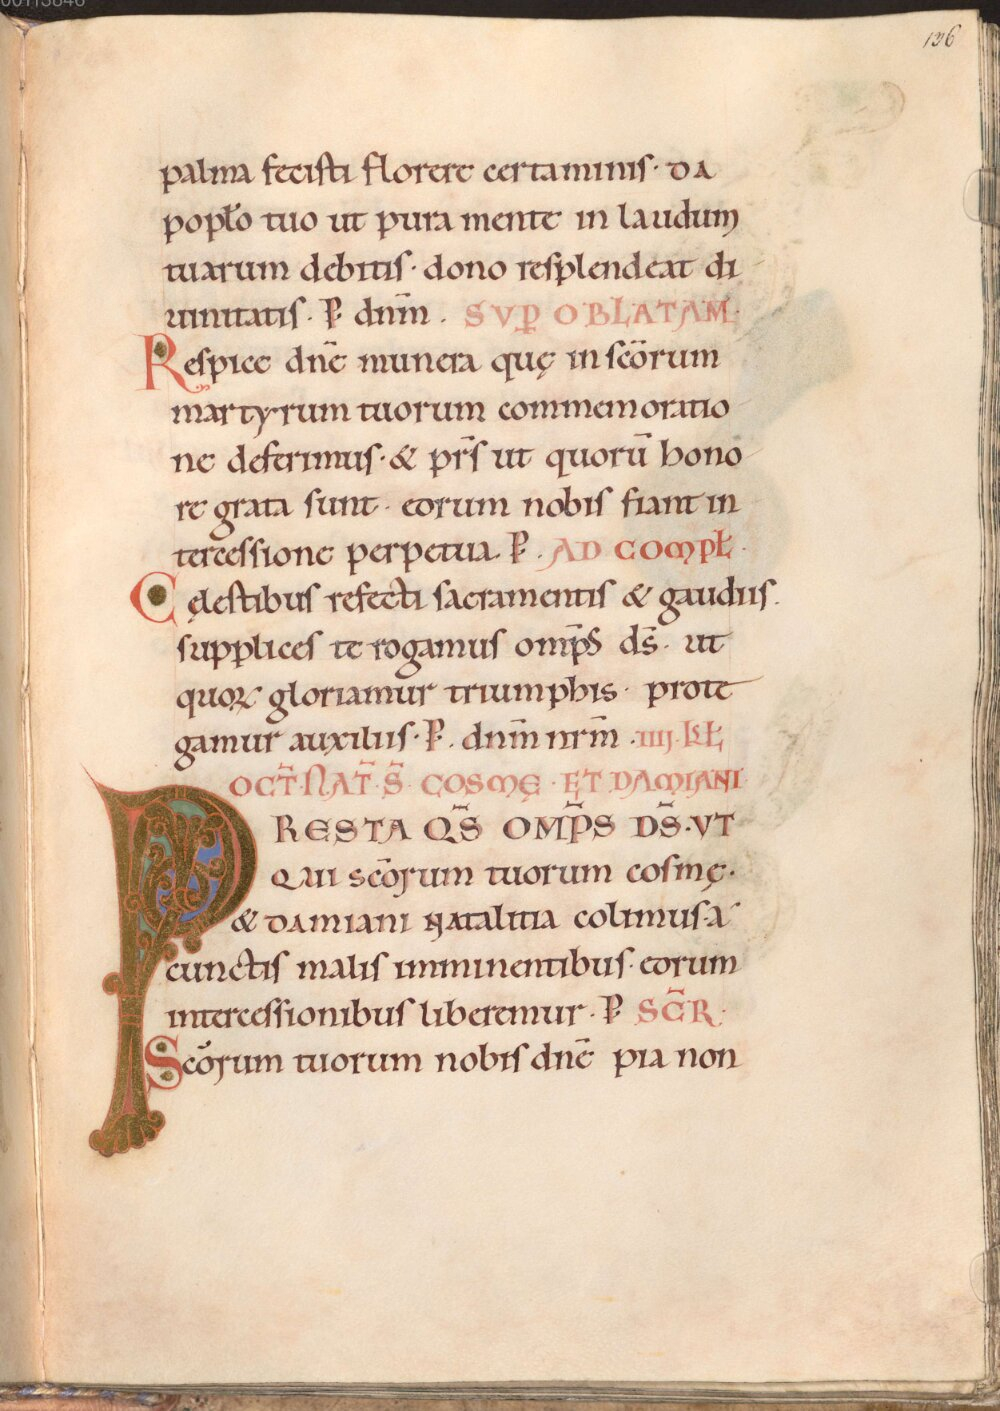 136
palma fecisti florere certaminis · DA
popło tuo ut pura mente in laudum
tuarum debitis · dono resplendeat di
uinitatis · P̄ dnm̄ . SUP̱ OBLATAM ·
Respice dnē munera quę in scōrum
martyrum tuorum commemoratio
ne deferimus · & pr̄s ut quorū hono
re grata sunt · eorum nobis fiant in
tercessione perpetua. P̄ . AD COMPŁ ·
Cęlestibus refecti sacramentis & gaudiis .
supplices te rogamus omp̄s ds̄ · ut
quoꝝ gloriamur triumphis · prote
gamur auxiliis · P̄ . dnm̄ nrm̄ . IIIJ · KŁ
OCT̄ · NAT̄ · S̄ · COSMĘ · ET DAMIANI
PRESTA QS̄ OMP̄S DS̄ · VT
QUI scōrum tuorum cosmę ·
& DAMIANI Natalitia colimus · A
cunctis malis imminentibus · eorum
intercessionibus liberemur · P̄ SEC̄R ·
Scōrum tuorum nobis dnē pia non